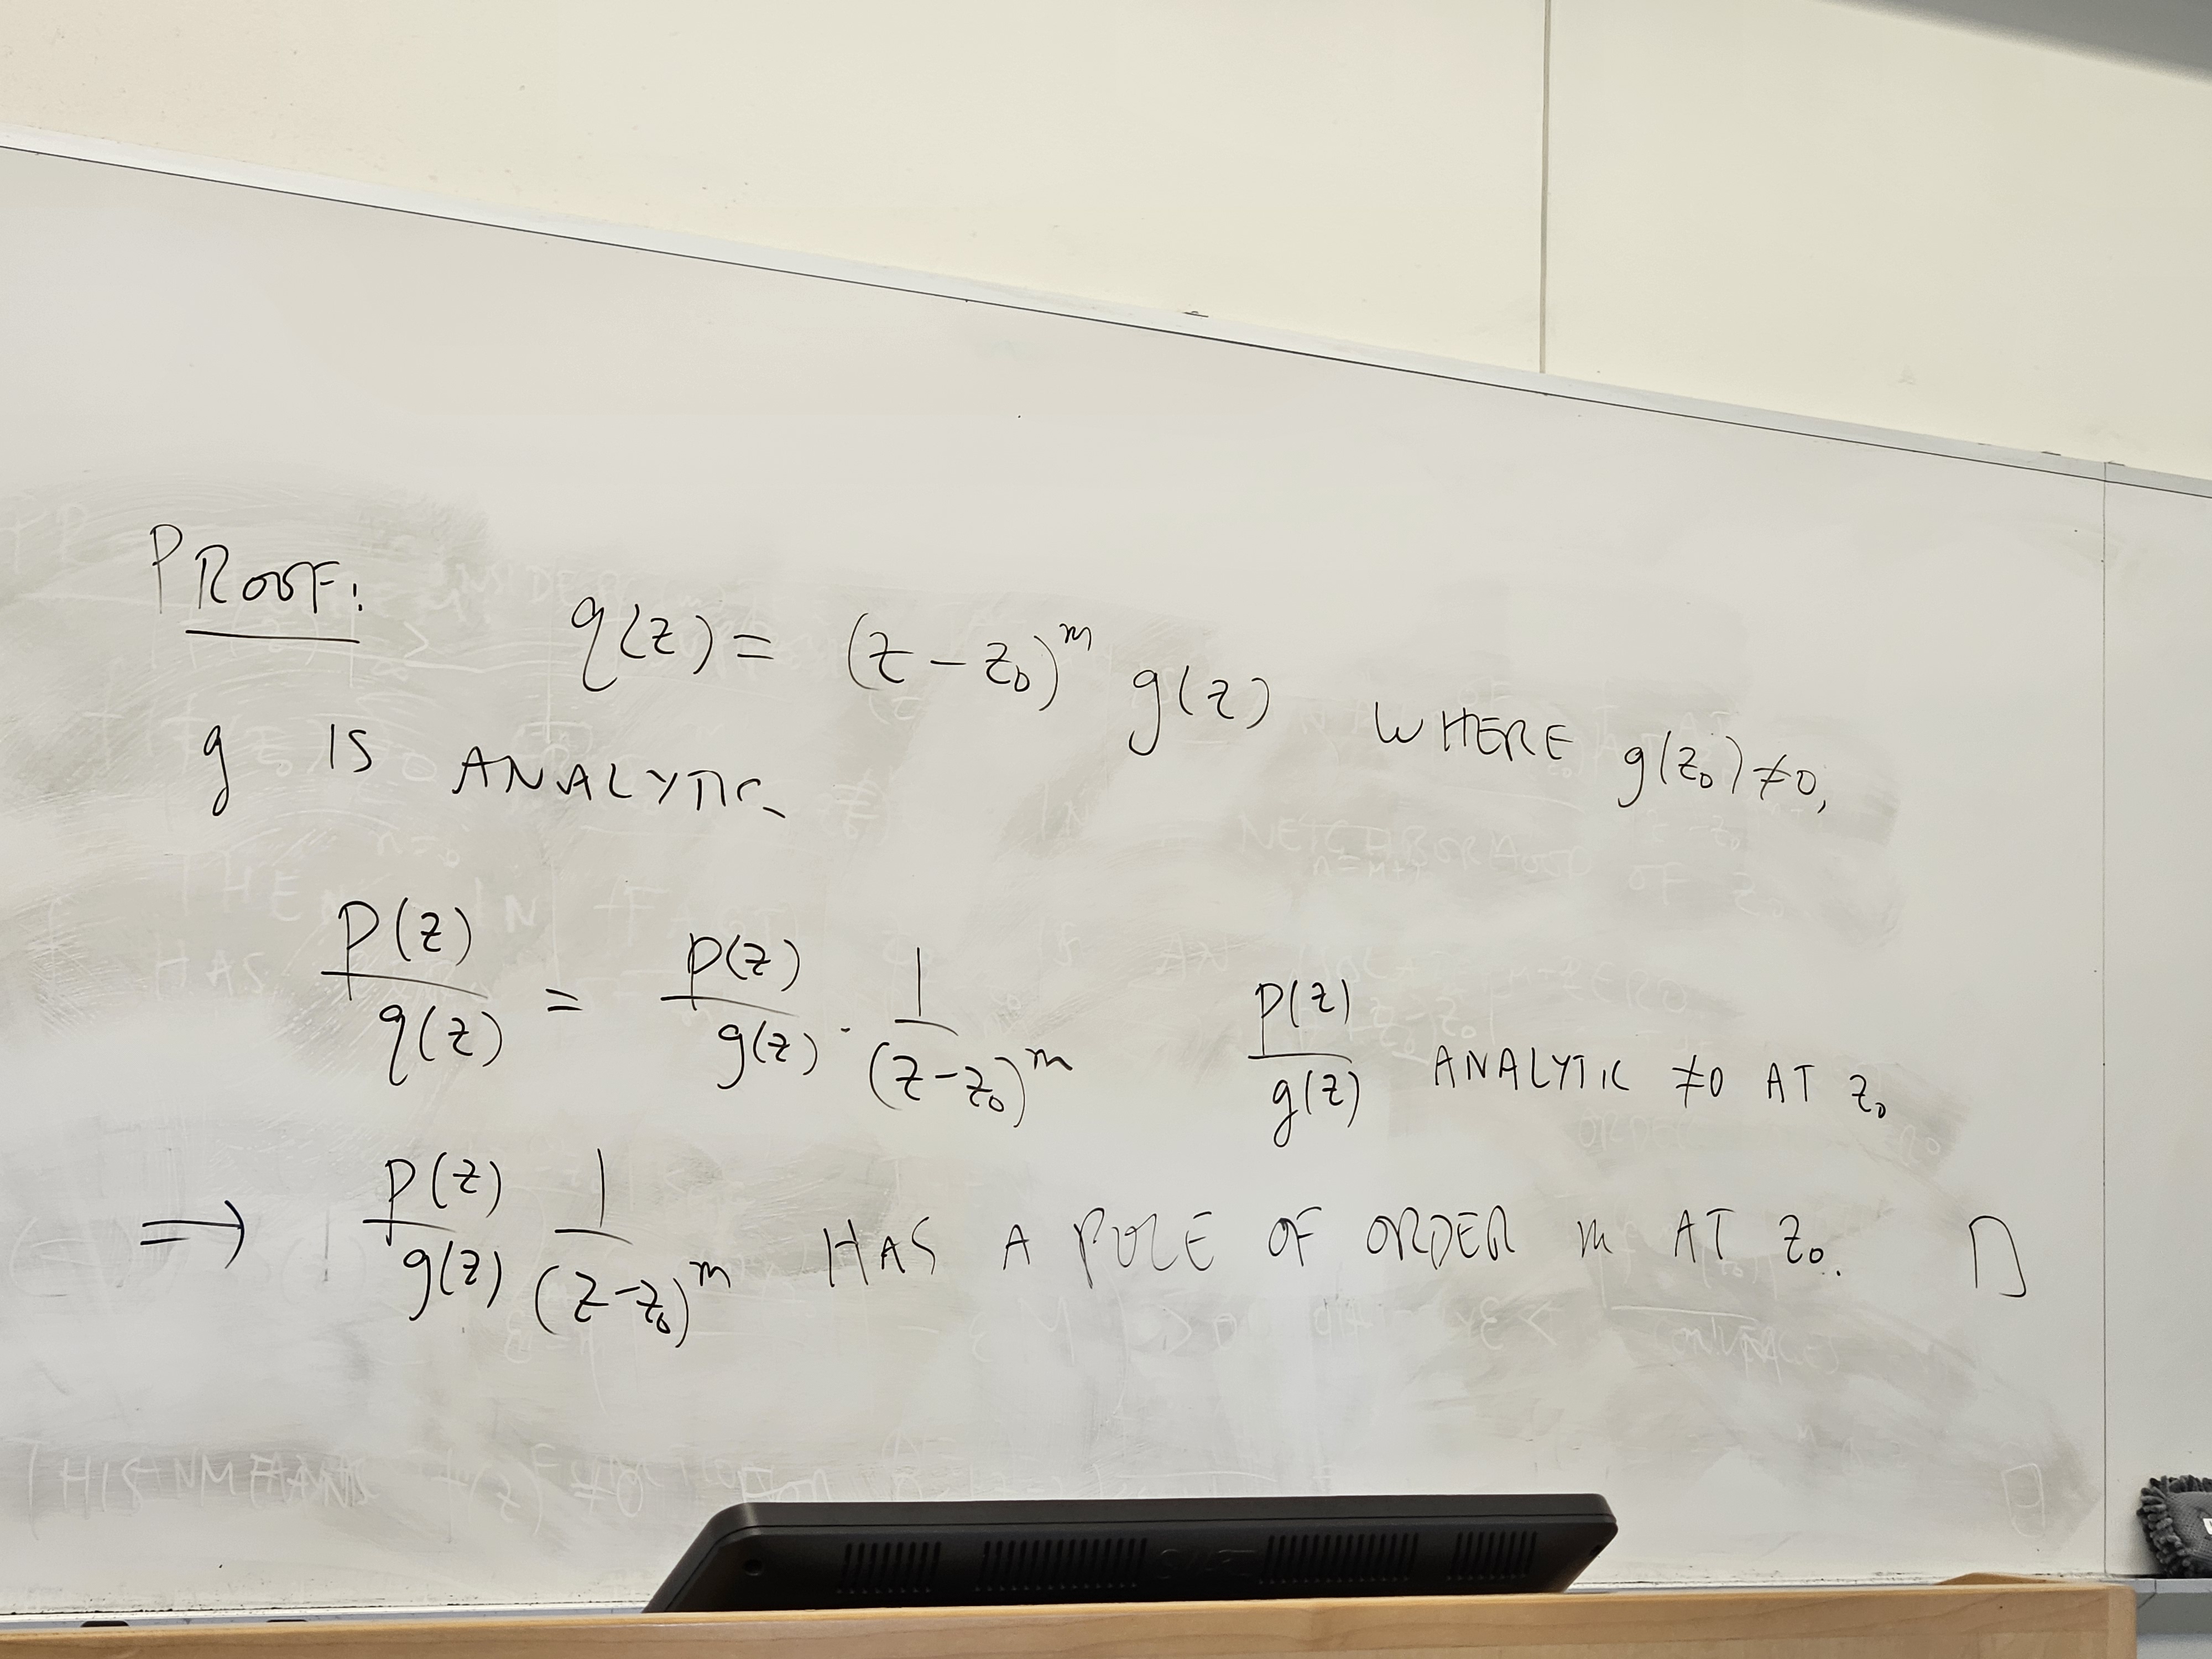 PROOF: q(z) = (z - z₀)ᵐ g(z) WHERE g(z₀) ≠ 0,
g IS ANALYTIC.
p(z)/q(z) = p(z)/g(z) · 1/(z-z₀)ᵐ p(z)/g(z) ANALYTIC ≠0 AT z₀
⟹ p(z)/g(z) 1/(z-z₀)ᵐ HAS A POLE OF ORDER m AT z₀. □